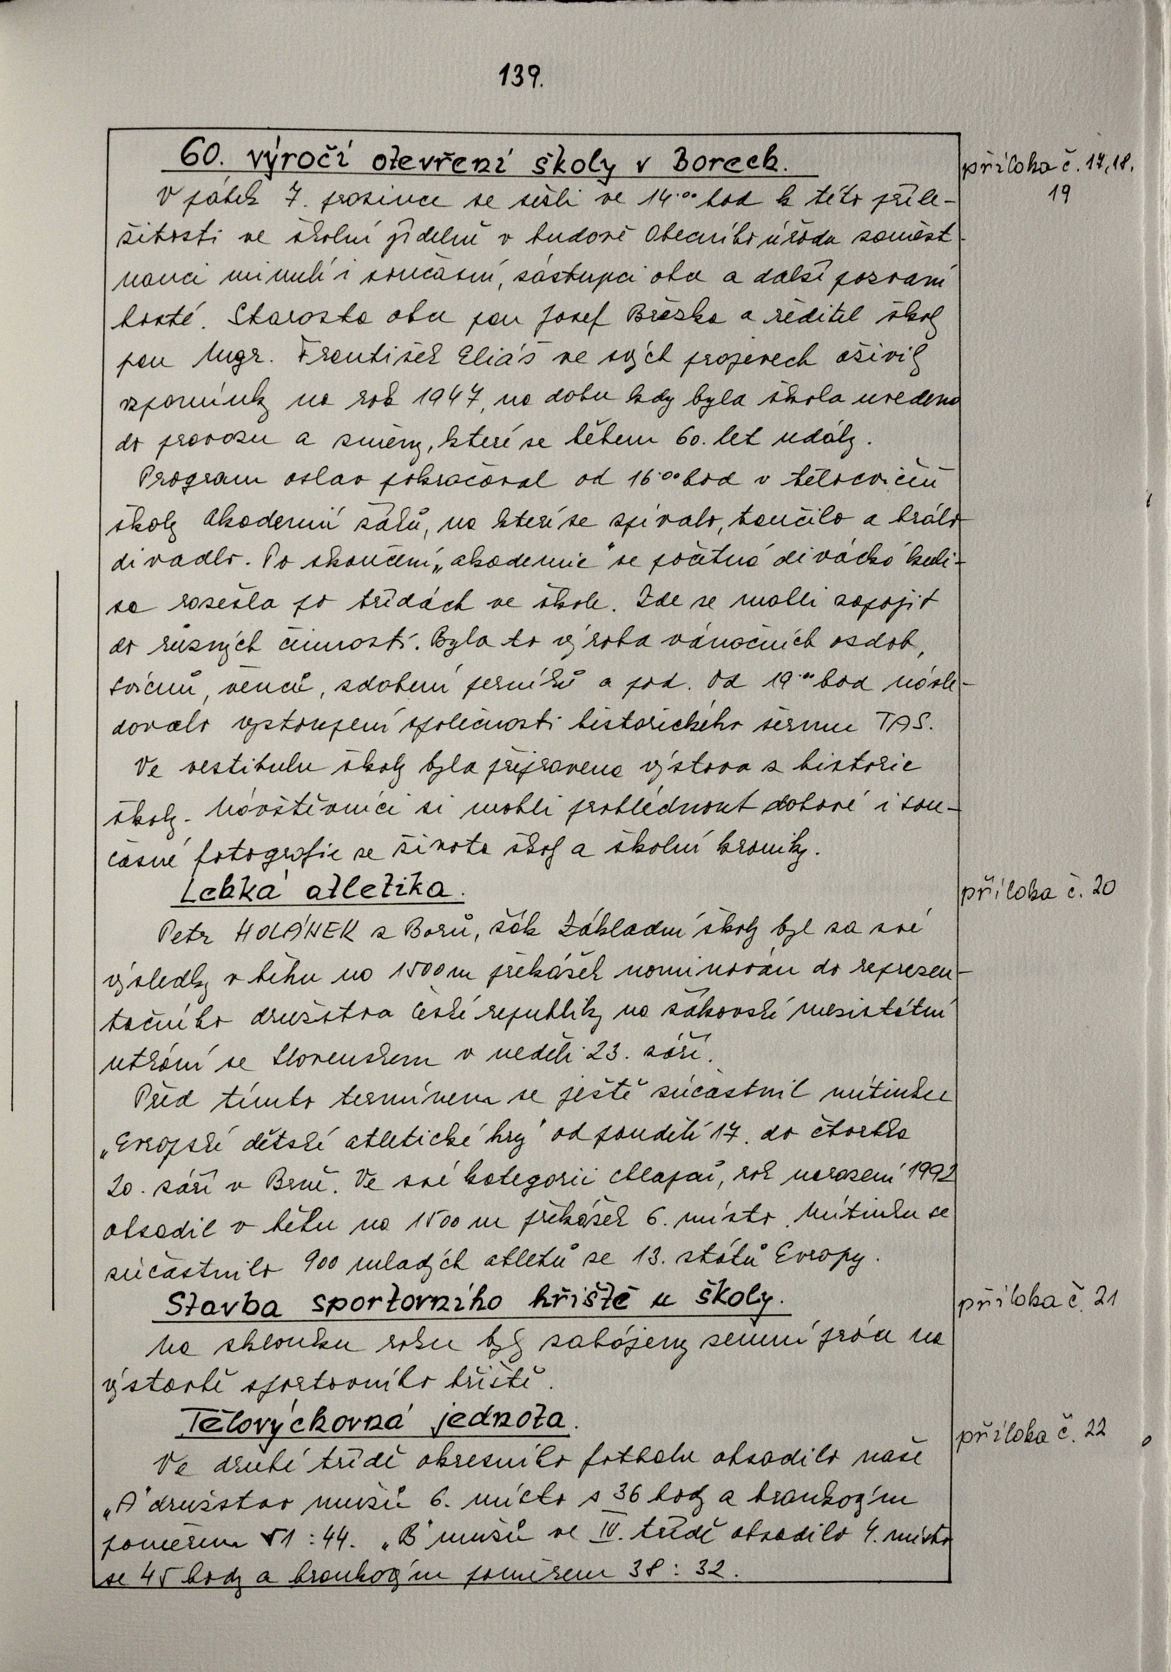 139.
60. výročí otevření školy v Borech.
příloha č. 17, 18,
19
V pátek 7. prosince se sešli ve 14.00 hod k této příle-
žitosti ve školní jídelně v budově Obecního úřadu zaměst-
nanci minulí i současní, zástupci obce a další pozvaní
hosté. Starosta obce pan Josef Březka a ředitel školy
pan Mgr. František Eliáš ve svých projevech oživily
vzpomínky na rok 1947, na dobu kdy byla škola uvedena
do provozu a změny, které se během 60. let udály.
Program oslav pokračoval od 16.00 hod v tělocvičně
školy Akademií žáků, na které se zpívalo, tančilo a hrálo
divadlo. Po skončení „akademie" se početná divácká kuli-
sa rozešla po třídách ve škole. Zde se mohli zapojit
do různých činností. Byla to výroba vánočních ozdob,
svícnů, věnců, zdobení perníků a pod. Od 19.00 hod násle-
dovalo vystoupení společnosti historického šermu TAS.
Ve vestibulu školy byla připravena výstava z historie
školy. Návštěvníci si mohli prohlédnout dobové i sou-
časné fotografie ze života školy a školní kroniky.
Lehká atletika.
příloha č. 20
Petr HOLÁNEK z Borů, žák Základní školy byl za své
výsledky v běhu na 1500 m překážek nominován do reprezen-
tačního družstva České republiky na žákovské mezistátní
utkání se Slovenskem v neděli 23. září.
Před tímto termínem se ještě zúčastnil mítinku
„Evropské dětské atletické hry" od pondělí 17. do čtvrtka
20. září v Brně. Ve své kategorii chlapci, rok narození 1992
obsadil v běhu na 1500 m překážek 6. místo. Mítinku se
zúčastnilo 900 mladých atletů ze 13. států Evropy.
Stavba sportovního hřiště u školy.
příloha č. 21
Na sklonku roku byly zahájeny zemní práce na
výstavbě sportovního hřiště.
Tělovýchovná jednota.
příloha č. 22
Ve druhé třídě okresního fotbalu obsadilo naše
„A" družstvo mužů 6. místo s 36 body a brankovým
poměrem 51 : 44. „B" mužů ve IV. třídě obsadilo 4. místo
se 45 body a brankovým poměrem 38 : 32.